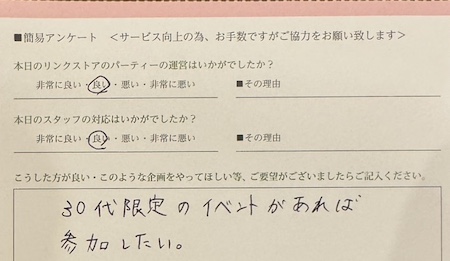 ■簡易アンケート <サービス向上の為、お手数ですがご協力をお願い致します>
本日のリンクストアのパーティーの運営はいかがでしたか?
非常に良い・良い・悪い・非常に悪い ■その理由
本日のスタッフの対応はいかがでしたか?
非常に良い・良い・悪い・非常に悪い ■その理由
こうした方が良い・このような企画をやってほしい等、ご要望がございましたらご記入ください。
30代限定のイベントがあれば
参加したい。